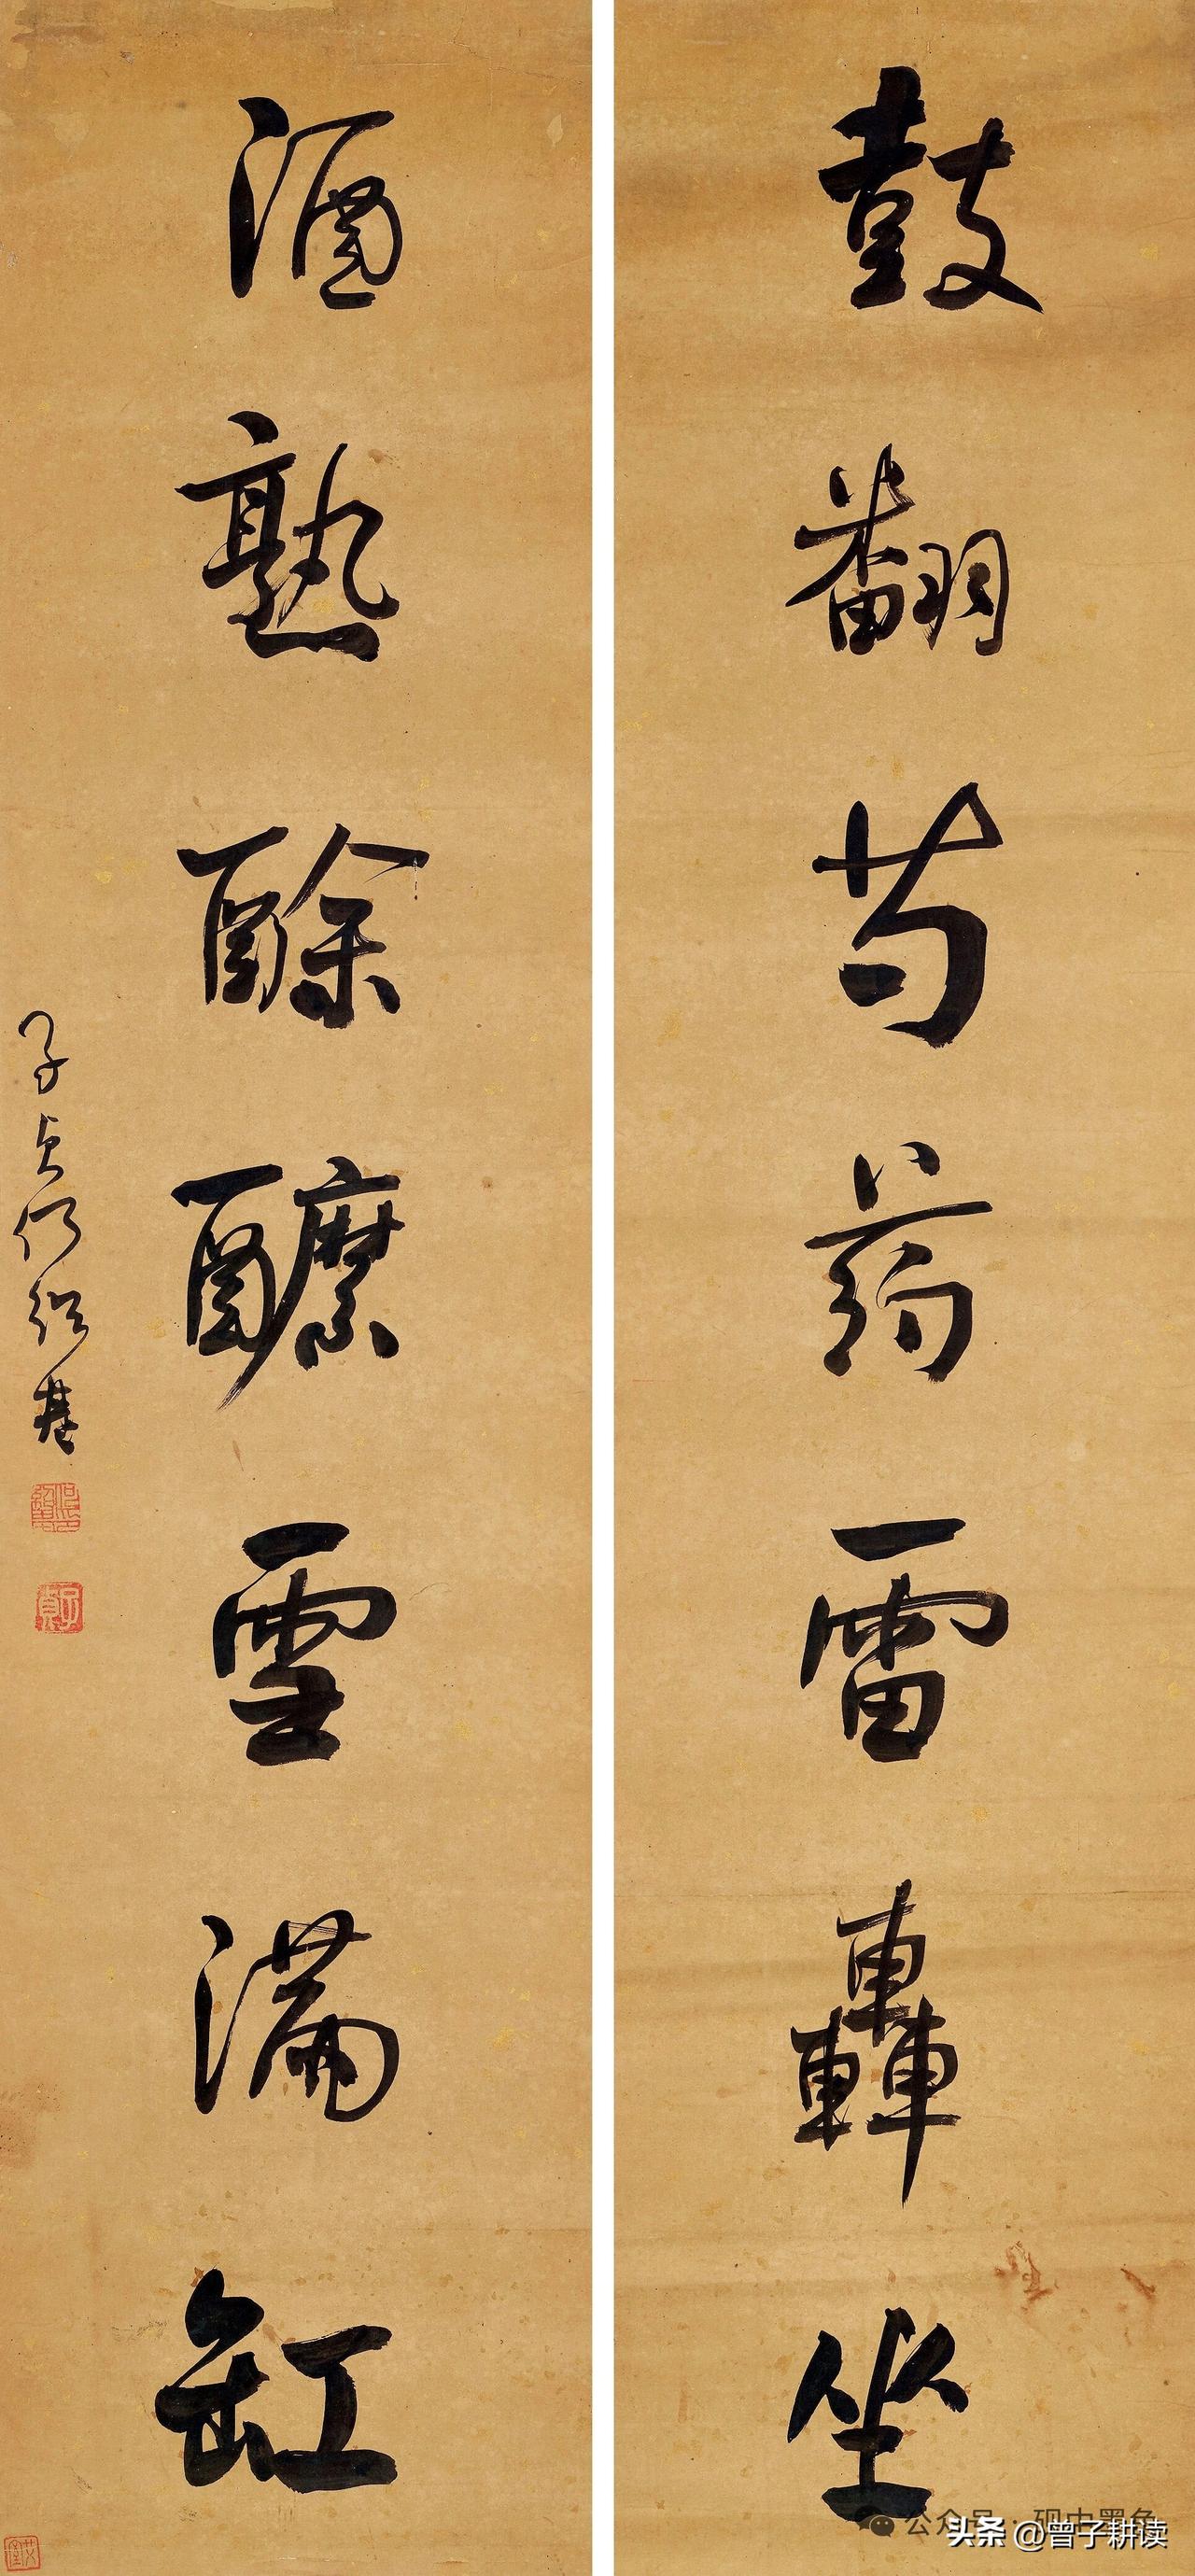 鼓翻芍药雷轟坐
酒熟酴醾雪滿缸
子貞何紹基
公众号·砚中墨色
头条 @曾子耕读